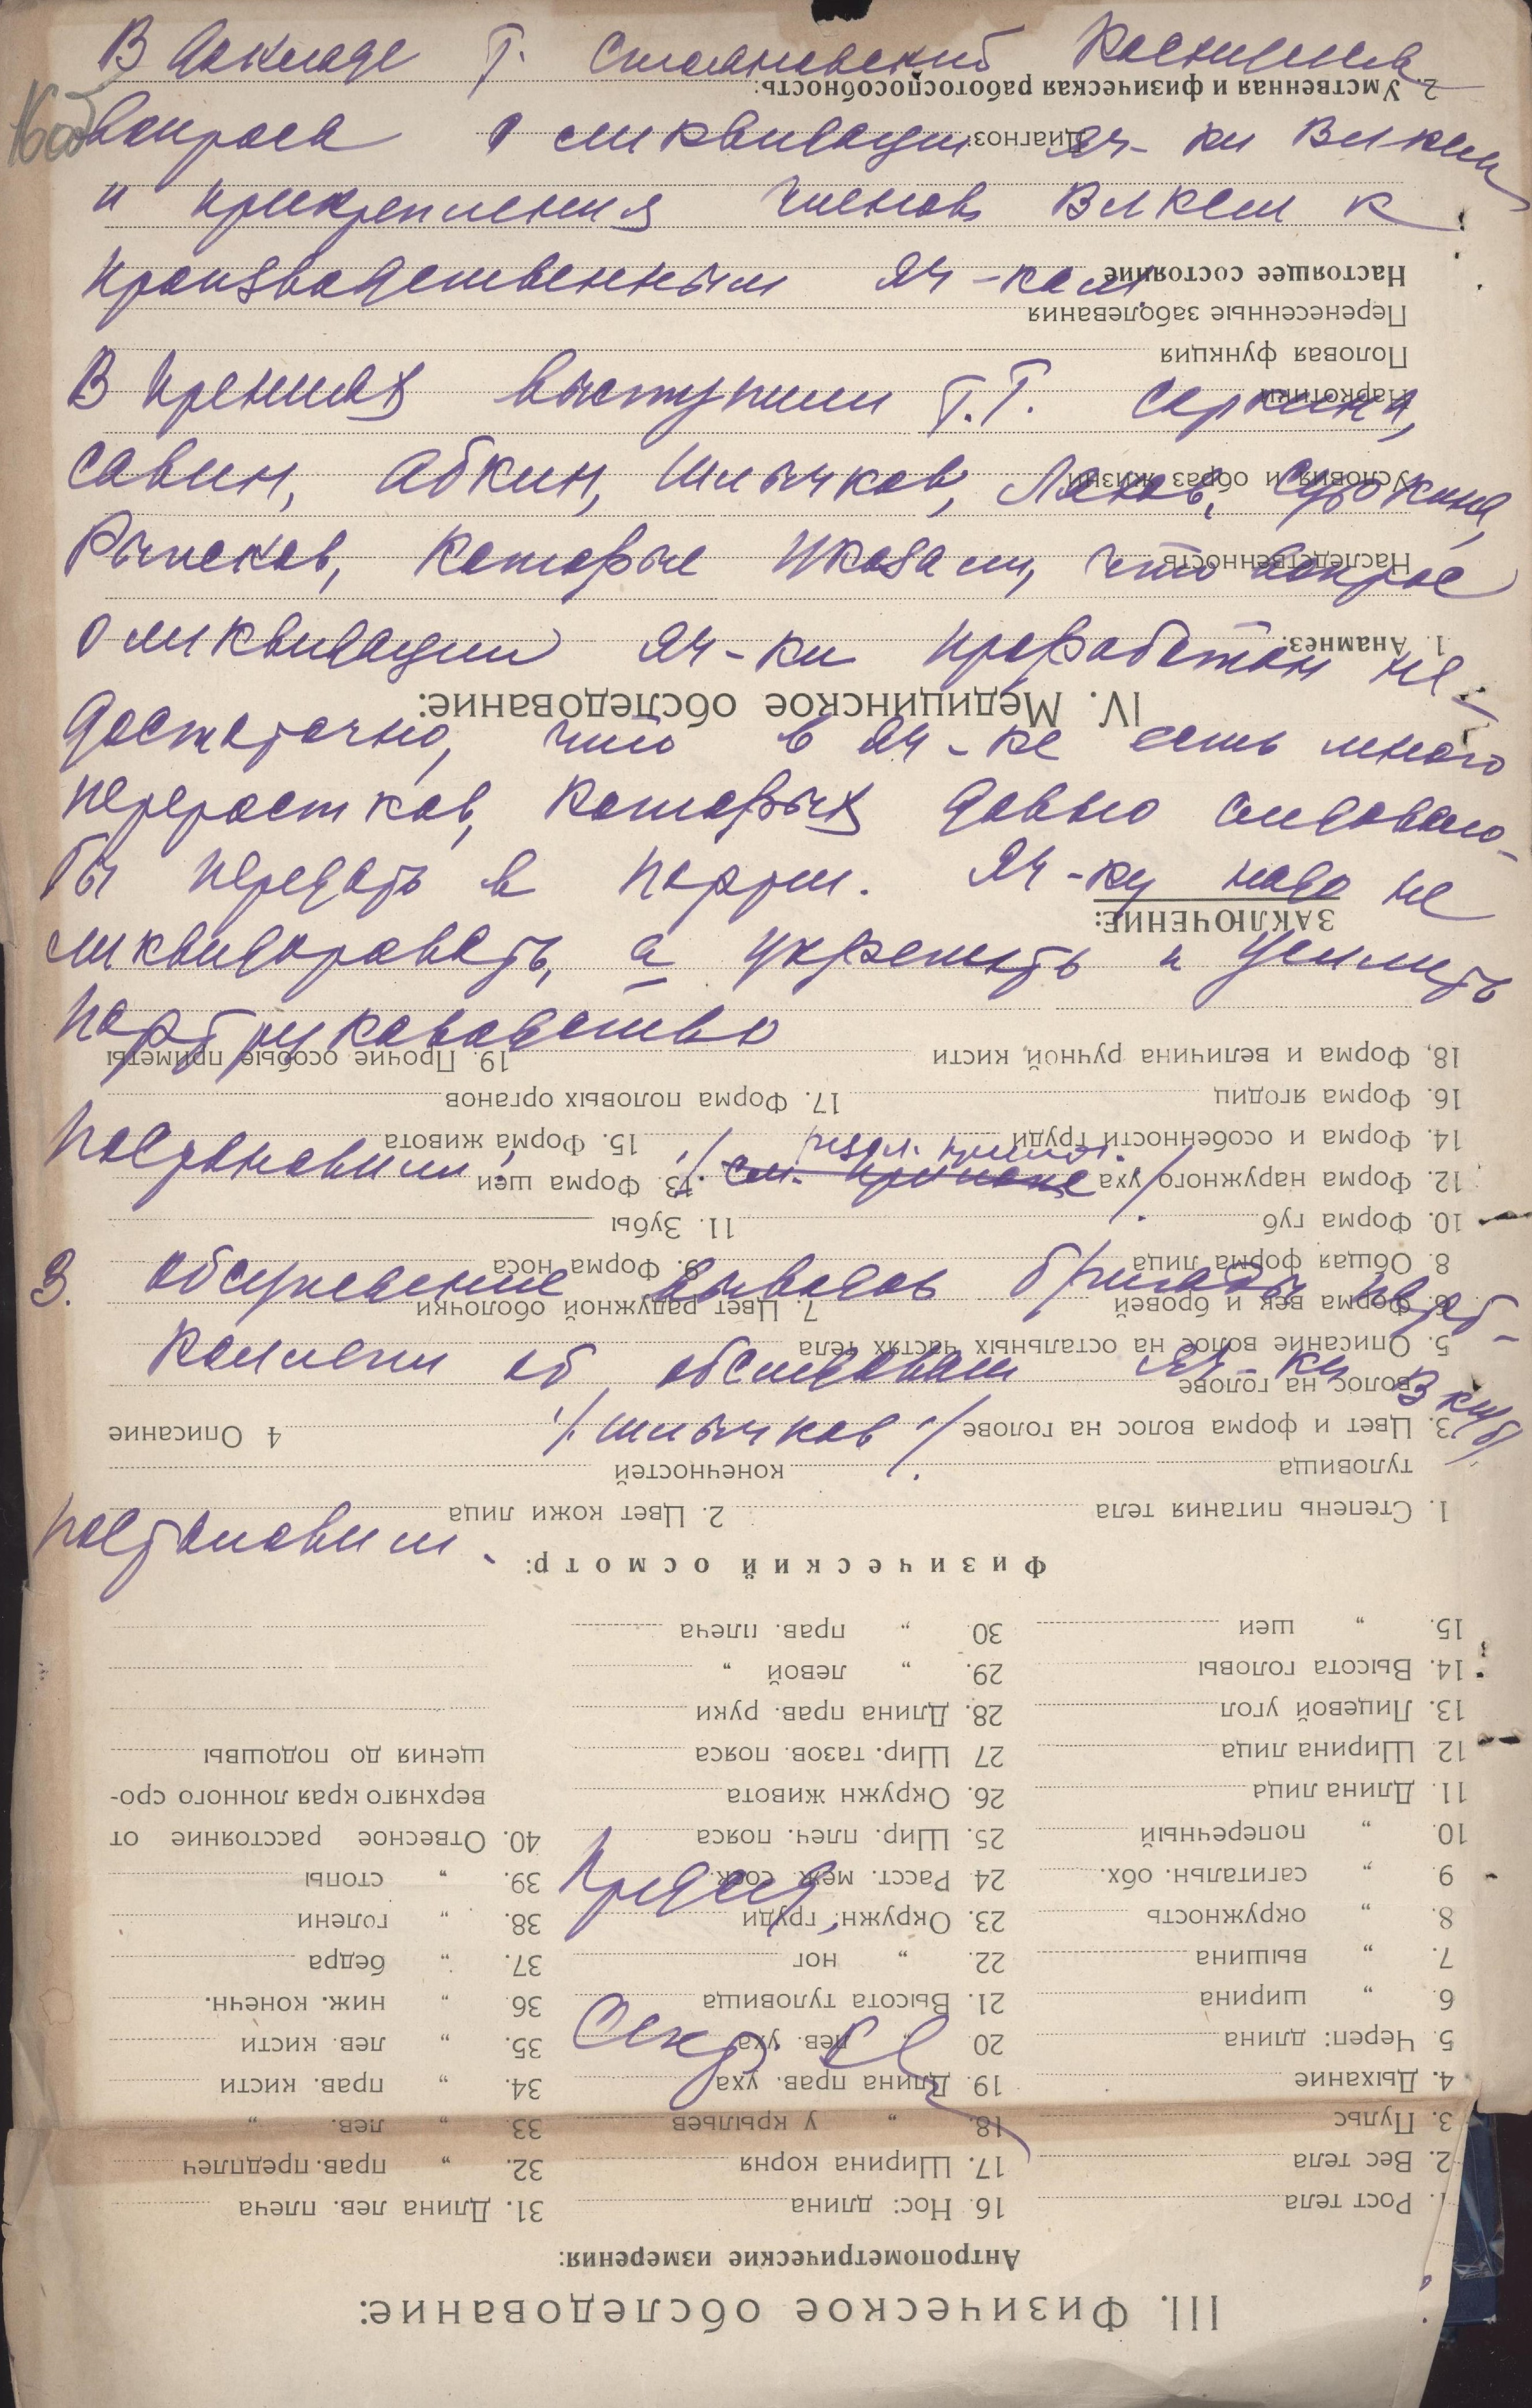 В докладе т. Смоляновский коснулся
вопроса о ликвидации яч-ки ВЛКСМ
и прикрепления членов ВЛКСМ к
производственным яч-кам
В прениях выступили т.т. Серкина,
Савин, Абкин, Шлычков, Ляков, Сурокина,
Рыпсков, которые указали, что вопрос
о ликвидации яч-ки проработан не-
достаточно, что в яч-ке есть много
переростков, которых давно следовало-
бы передать в партии. Яч-ку надо не
ликвидировать, а укрепить и усилить
партруководство
Постановили: /. резол. прилог. ./
см.
3. Обсуждение выводов бригады парт-
коллеги об обследован яч-ки ВКП/б/
/. Шлычков ./
Постановили.
Председ.
Секр.
III. Физическое обследование:
Антропометрические измерения:
1. Рост тела
2. Вес тела
3. Пульс
4. Дыхание
5. Череп: длина
6. „ ширина
7. „ вышина
8. „ окружность
9. „ сагитальн. обх.
10. „ поперечный
11. Длина лица
12. Ширина лица
13. Лицевой угол
14. Высота головы
15. „ шеи
16. Нос: длина
17. Ширина корня
18. „ у крыльев
19. Длина прав. уха
20. „ лев. уха
21. Высота туловища
22. „ ног
23. Окружн. груди
24. Расст. меж. соск.
25. Шир. плеч. пояса
26. Окружн живота
27 Шир. тазов. пояса
28. Длина прав. руки
29. „ левой „
30. „ прав. плеча
31. Длина лев. плеча
32. „ прав. предплеч
33 „ лев. „
34. „ прав. кисти
35. „ лев. кисти
36 „ ниж. конечн.
37. „ бедра
38. „ голени
39. „ стопы
40. Отвесное расстояние от
верхняго края лонного сро-
щения до подошвы
Физический осмотр:
1. Степень питания тела 2. Цвет кожи лица
туловища конечностей
3. Цвет и форма волос на голове 4 Описание
волос на голове
5. Описание волос на остальных частях тела
6. Форма век и бровей 7. Цвет радужной оболочки
8. Общая форма лица 9. Форма носа
10. Форма губ 11. Зубы
12. Форма наружного уха 13. Форма шеи
14. Форма и особенности груди 15. Форма живота
16. Форма ягодиц 17. Форма половых органов
18, Форма и величина ручной кисти 19. Прочие особые приметы
ЗАКЛЮЧЕНИЕ:
IV. Медицинское обследование:
1. Анамнез:
Наследственность
Условия и образ жизни
Наркотики
Половая функция
Перенесенные заболевания
Настоящее состояние
Диагноз:
2. Умственная и физическая работоспособность: